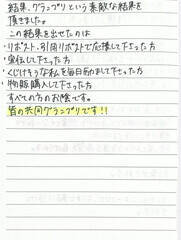 結果、グランプリという素敵な結果を
頂きました。
この結果を出せたのは
・リポスト、引用リポストで応援して下さった方
・宣伝して下さった方
・くじけそうな私を毎日励まして下さった方
・物販購入して下さった方
すべての方のお陰です。
皆の共同グランプリです!!